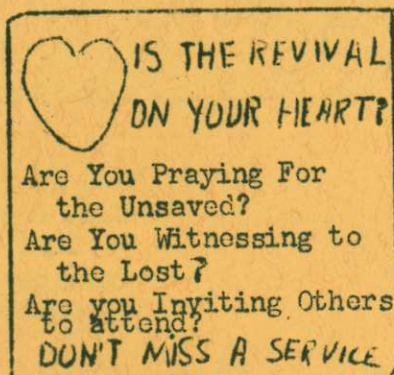 IS THE REVIVAL
ON YOUR HEART?
Are You Praying For
the Unsaved?
Are You Witnessing to
the Lost?
Are you Inviting Others
to attend?
DON'T MISS A SERVICE